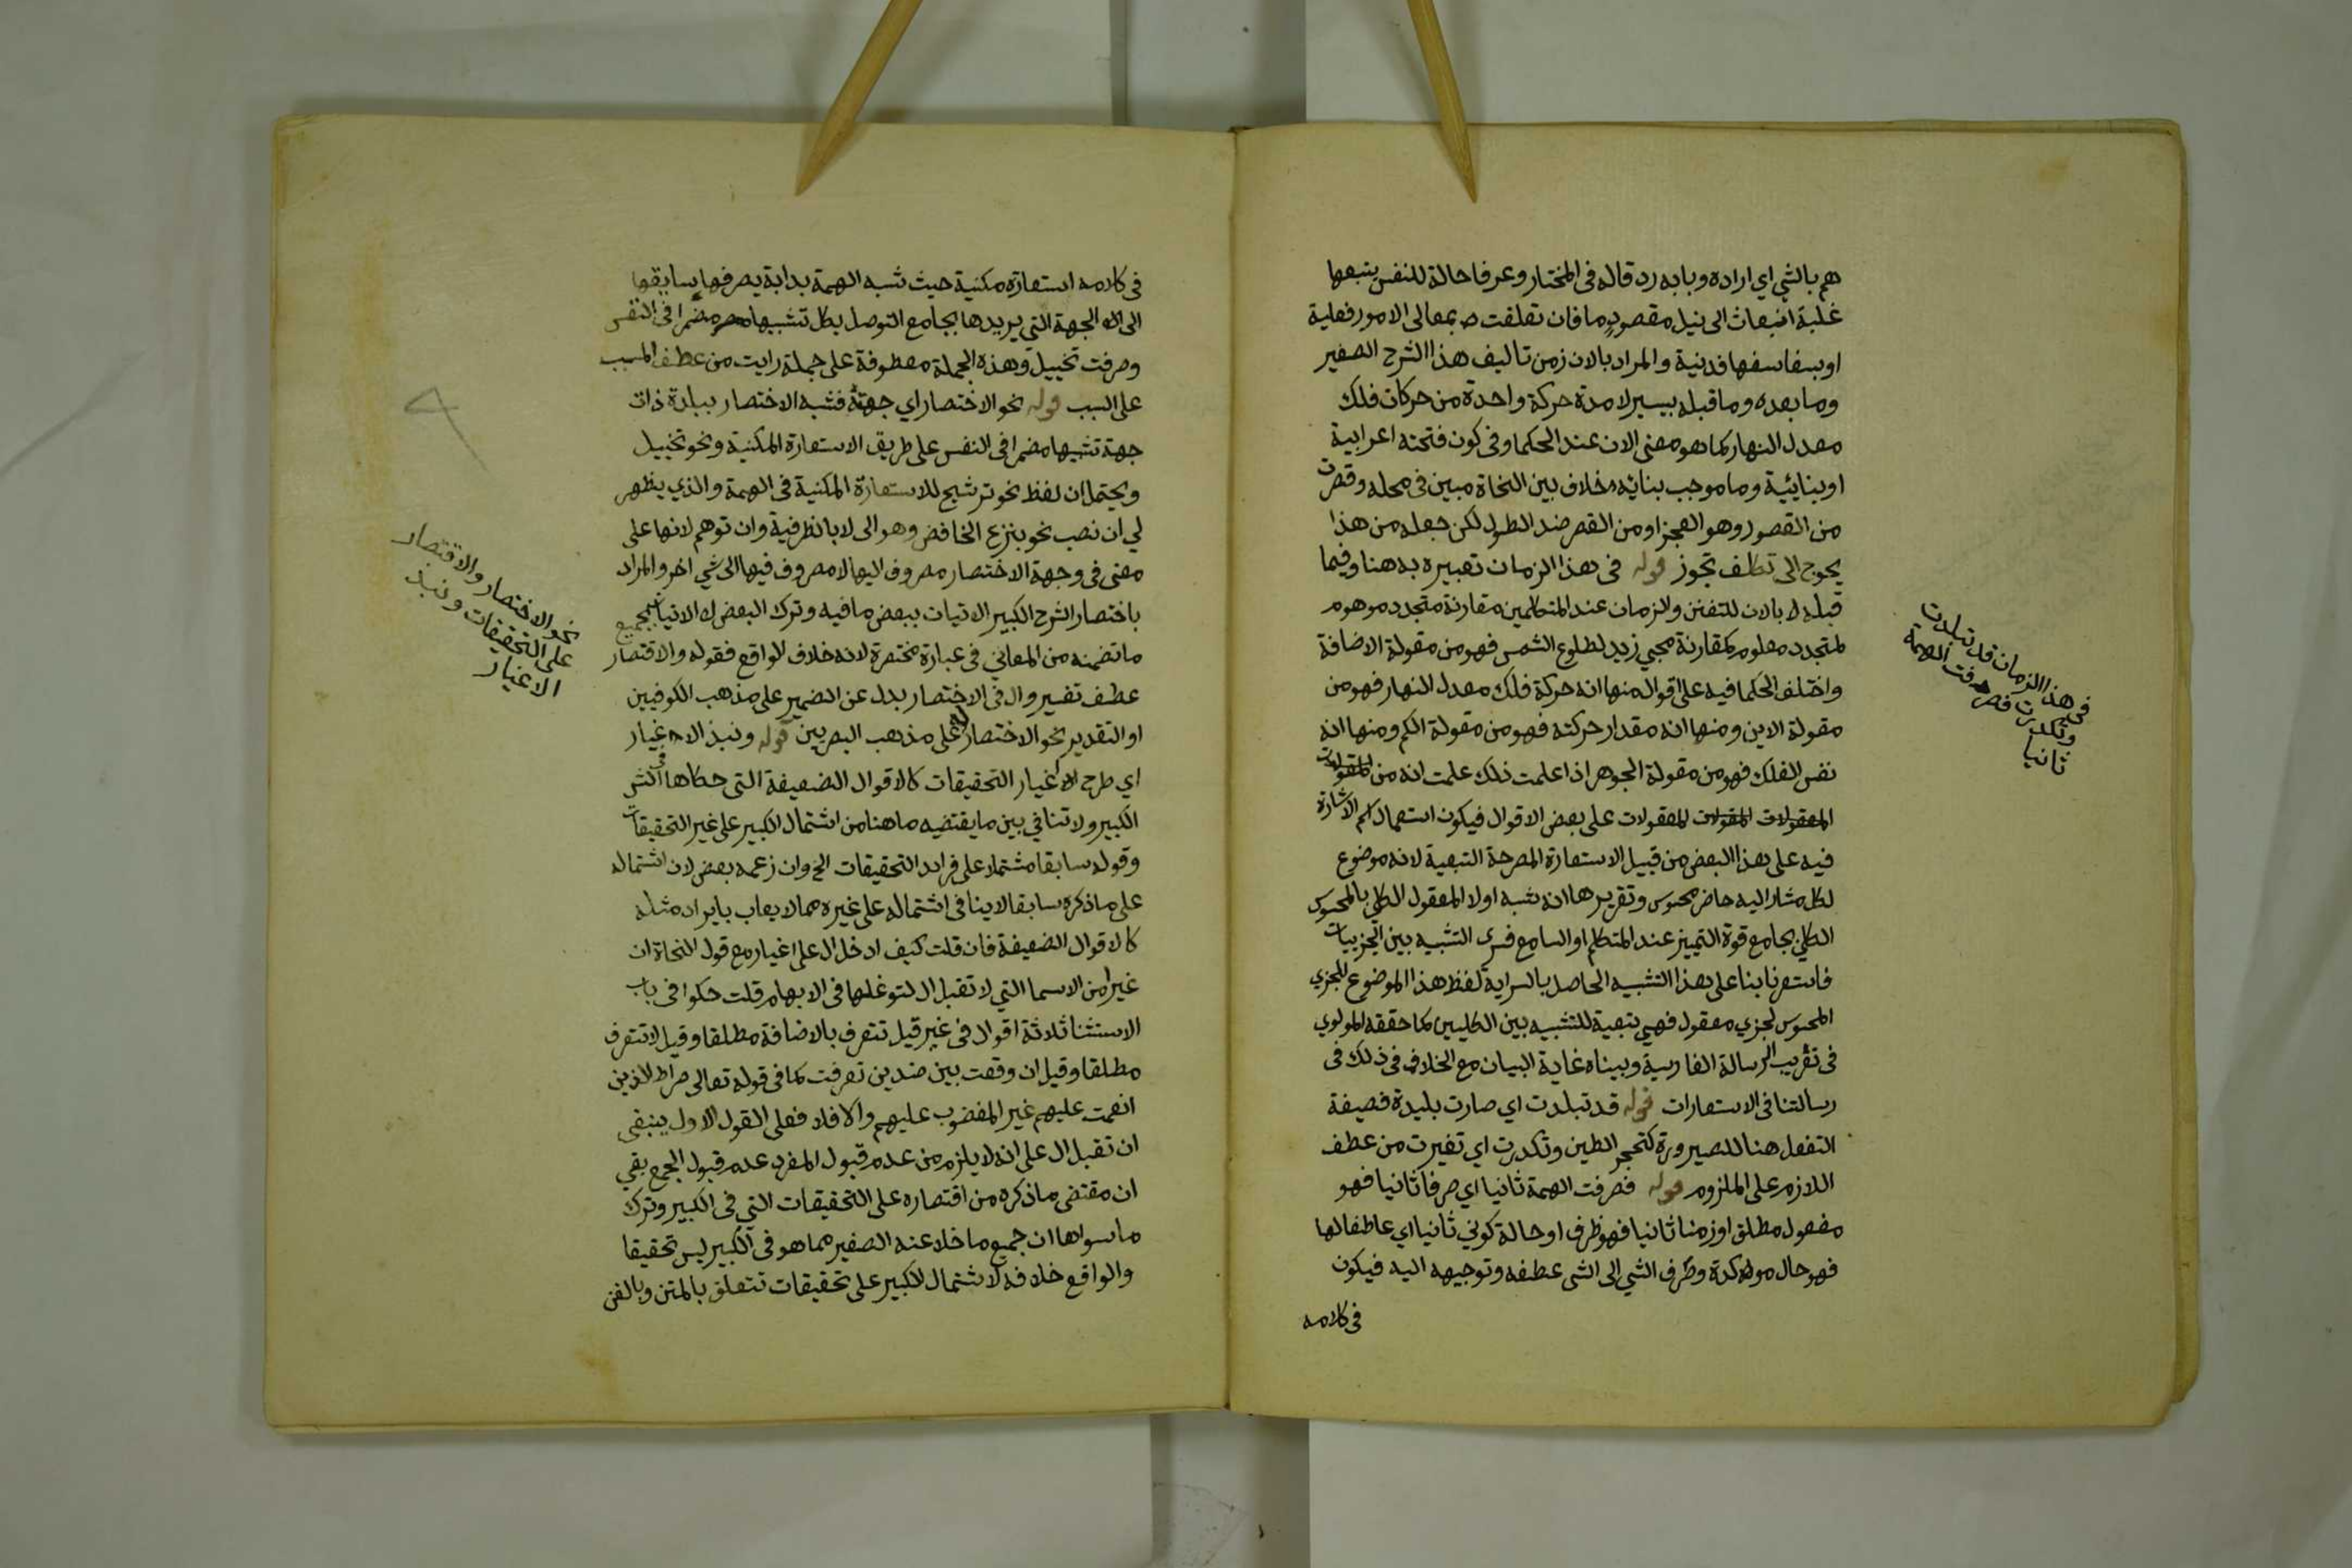 هم بالشي اي اراده وبابه رد قاله في المختار وعرفا حالة للنفس يتبعها
غلبة انبعاث الى نيل مقصود ما فان تعلقت بمعالى الامور فعلية
او بسفاسفها فدنية والمراد بالان زمن تاليف هذا الشرح الصغير
وما بعده وما قبله بيسير لا مدة حركة واحدة من حركات فلك
معدل النهار كما هو معنى الان عند الحكما وفى كون فتحته اعرابية
او بنائية وما موجب بنائه خلاف بين النحاة مبين فى محله وقصرت
من القصور وهو العجز او من القصر ضد الطول لكن جعله من هذا
يحوج الى تكلف تجوز قوله فى هذا الزمان تعبيره به هنا وفيما
قبله لا بالان للتفنن والزمان عند المتكلمين مقارنة متجدد موهوم
لمتجدد معلوم كمقارنة مجي زيد لطلوع الشمس فهو من مقولة الاضافة
واختلف الحكما فيه على اقوال منها انه حركة فلك معدل النهار فهو من
مقولة الاين ومنها انه مقدار حركته فهو من مقولة الكم ومنها انه
نفس الفلك فهو من مقولة الجوهر اذا علمت ذلك علمت انه من
المعقولات على بعض الاقوال فيكون استعمال اسم الاشارة
فيه على هذا البعض من قبيل الاستعارة المصرحة التبعية لانه موضوع
لكل مشار اليه حاضر محسوس وتقريرها انه شبه اولا المعقول الكلي بالمحسوس
الكلي بجامع قوة التمييز عند المتكلم او السامع فسرى التشبيه بين الجزييات
فاستعرنا بنا على هذا التشبيه الحاصل بالسراية لفظ هذا الموضوع للجزي
المحسوس لجزي معقول فهي تبعية للتشبيه بين الكليين كما حققه المولوي
فى تعريب الرسالة الفارسية وبيناه غاية البيان مع الخلاف فى ذلك فى
رسالتنا فى الاستعارات قوله قد تبلدت اي صارت بليدة فصيغة
التفعل هنا للصيرورة كتحجر الطين وتكدرت اي تغيرت من عطف
اللازم على الملزوم قوله فصرفت الهمة ثانيا اي صرفا ثانيا فهو
مفعول مطلق او زمنا ثانيا فهو ظرف او حالة كوني ثانيا اي عاطفا لها
فهو حال موكدة وصرف الشي الى الشي عطفه وتوجيهه اليه فيكون
فى كلامه
فى هذا الزمان قد تبلدت
وتكدرت فصرفت الهمة
ثانيا
فى كلامه استعارة مكنية حيث شبه الهمة بدابة يصرفها سايقها
الى الجهة التي يريدها بجامع التوصل بكل تشبيها مضمرا فى النفس
وصرفت تخييل وهذه الجملة معطوفة على جملة رايت من عطف المسبب
على السبب قوله نحو الاختصار اي جهته فشبه الاختصار ببلدة ذات
جهة تشبيها مضمرا فى النفس على طريق الاستعارة المكنية ونحو تخييل
ويحتمل ان لفظ نحو ترشيح للاستعارة المكنية فى الهمة والذي يظهر
لي ان نصب نحو بنزع الخافض وهو الى لا بالظرفية وان توهم لانها على
معنى فى وجهة الاختصار مصروف اليها لا مصروف فيها الى شي اخر والمراد
باختصار الشرح الكبير الاتيان ببعض ما فيه وترك البعض لا الاتيان بجميع
ما تضمنه من المعاني فى عبارة مختصرة لانه خلاف الواقع فقوله والاقتصار
عطف تفسير وال فى الاختصار بدل عن الضمير على مذهب الكوفيين
او التقدير نحو الاختصار له على مذهب البصريين قوله ونبذ الاغيار
اي طرح الاغيار التحقيقات كالاقوال الضعيفة التى حكاها فى الشر
الكبير ولا تنافي بين ما يقتضيه ما هنا من اشتمال الكبير على غير التحقيقات
وقوله سابقا مشتملا على فرايد التحقيقات الخ وان زعمه بعض لان اشتماله
على ما ذكره سابقا لا ينافى اشتماله على غيره مما لا يعاب بايراد مثله
كالاقوال الضعيفة فان قلت كيف ادخل ال على اغيار مع قول النحاة ان
غيرا من الاسما التي لا تقبل ال لتوغلها فى الابهام قلت حكوا فى باب
الاستثنا ثلاثة اقوال فى غير قيل تتعرف بالاضافة مطلقا وقيل لا تتعرف
مطلقا وقيل ان وقعت بين ضدين تعرفت كما فى قوله تعالى صراط الذين
انعمت عليهم غير المغضوب عليهم والا فلا فعلى القول الاول ينبغى
ان تقبل ال على انه لا يلزم من عدم قبول المفرد عدم قبول الجمع بقي
ان مقتضى ما ذكره من اقتصاره على التحقيقات التي فى الكبير وترك
ما سواها ان جميع ما خلا عنه الصغير مما هو فى الكبير ليس تحقيقا
والواقع خلافه لاشتمال الكبير على تحقيقات تتعلق بالمتن وبالفن
نحو الاختصار والاقتصار
على التحقيقات ونبذ
الاغيار